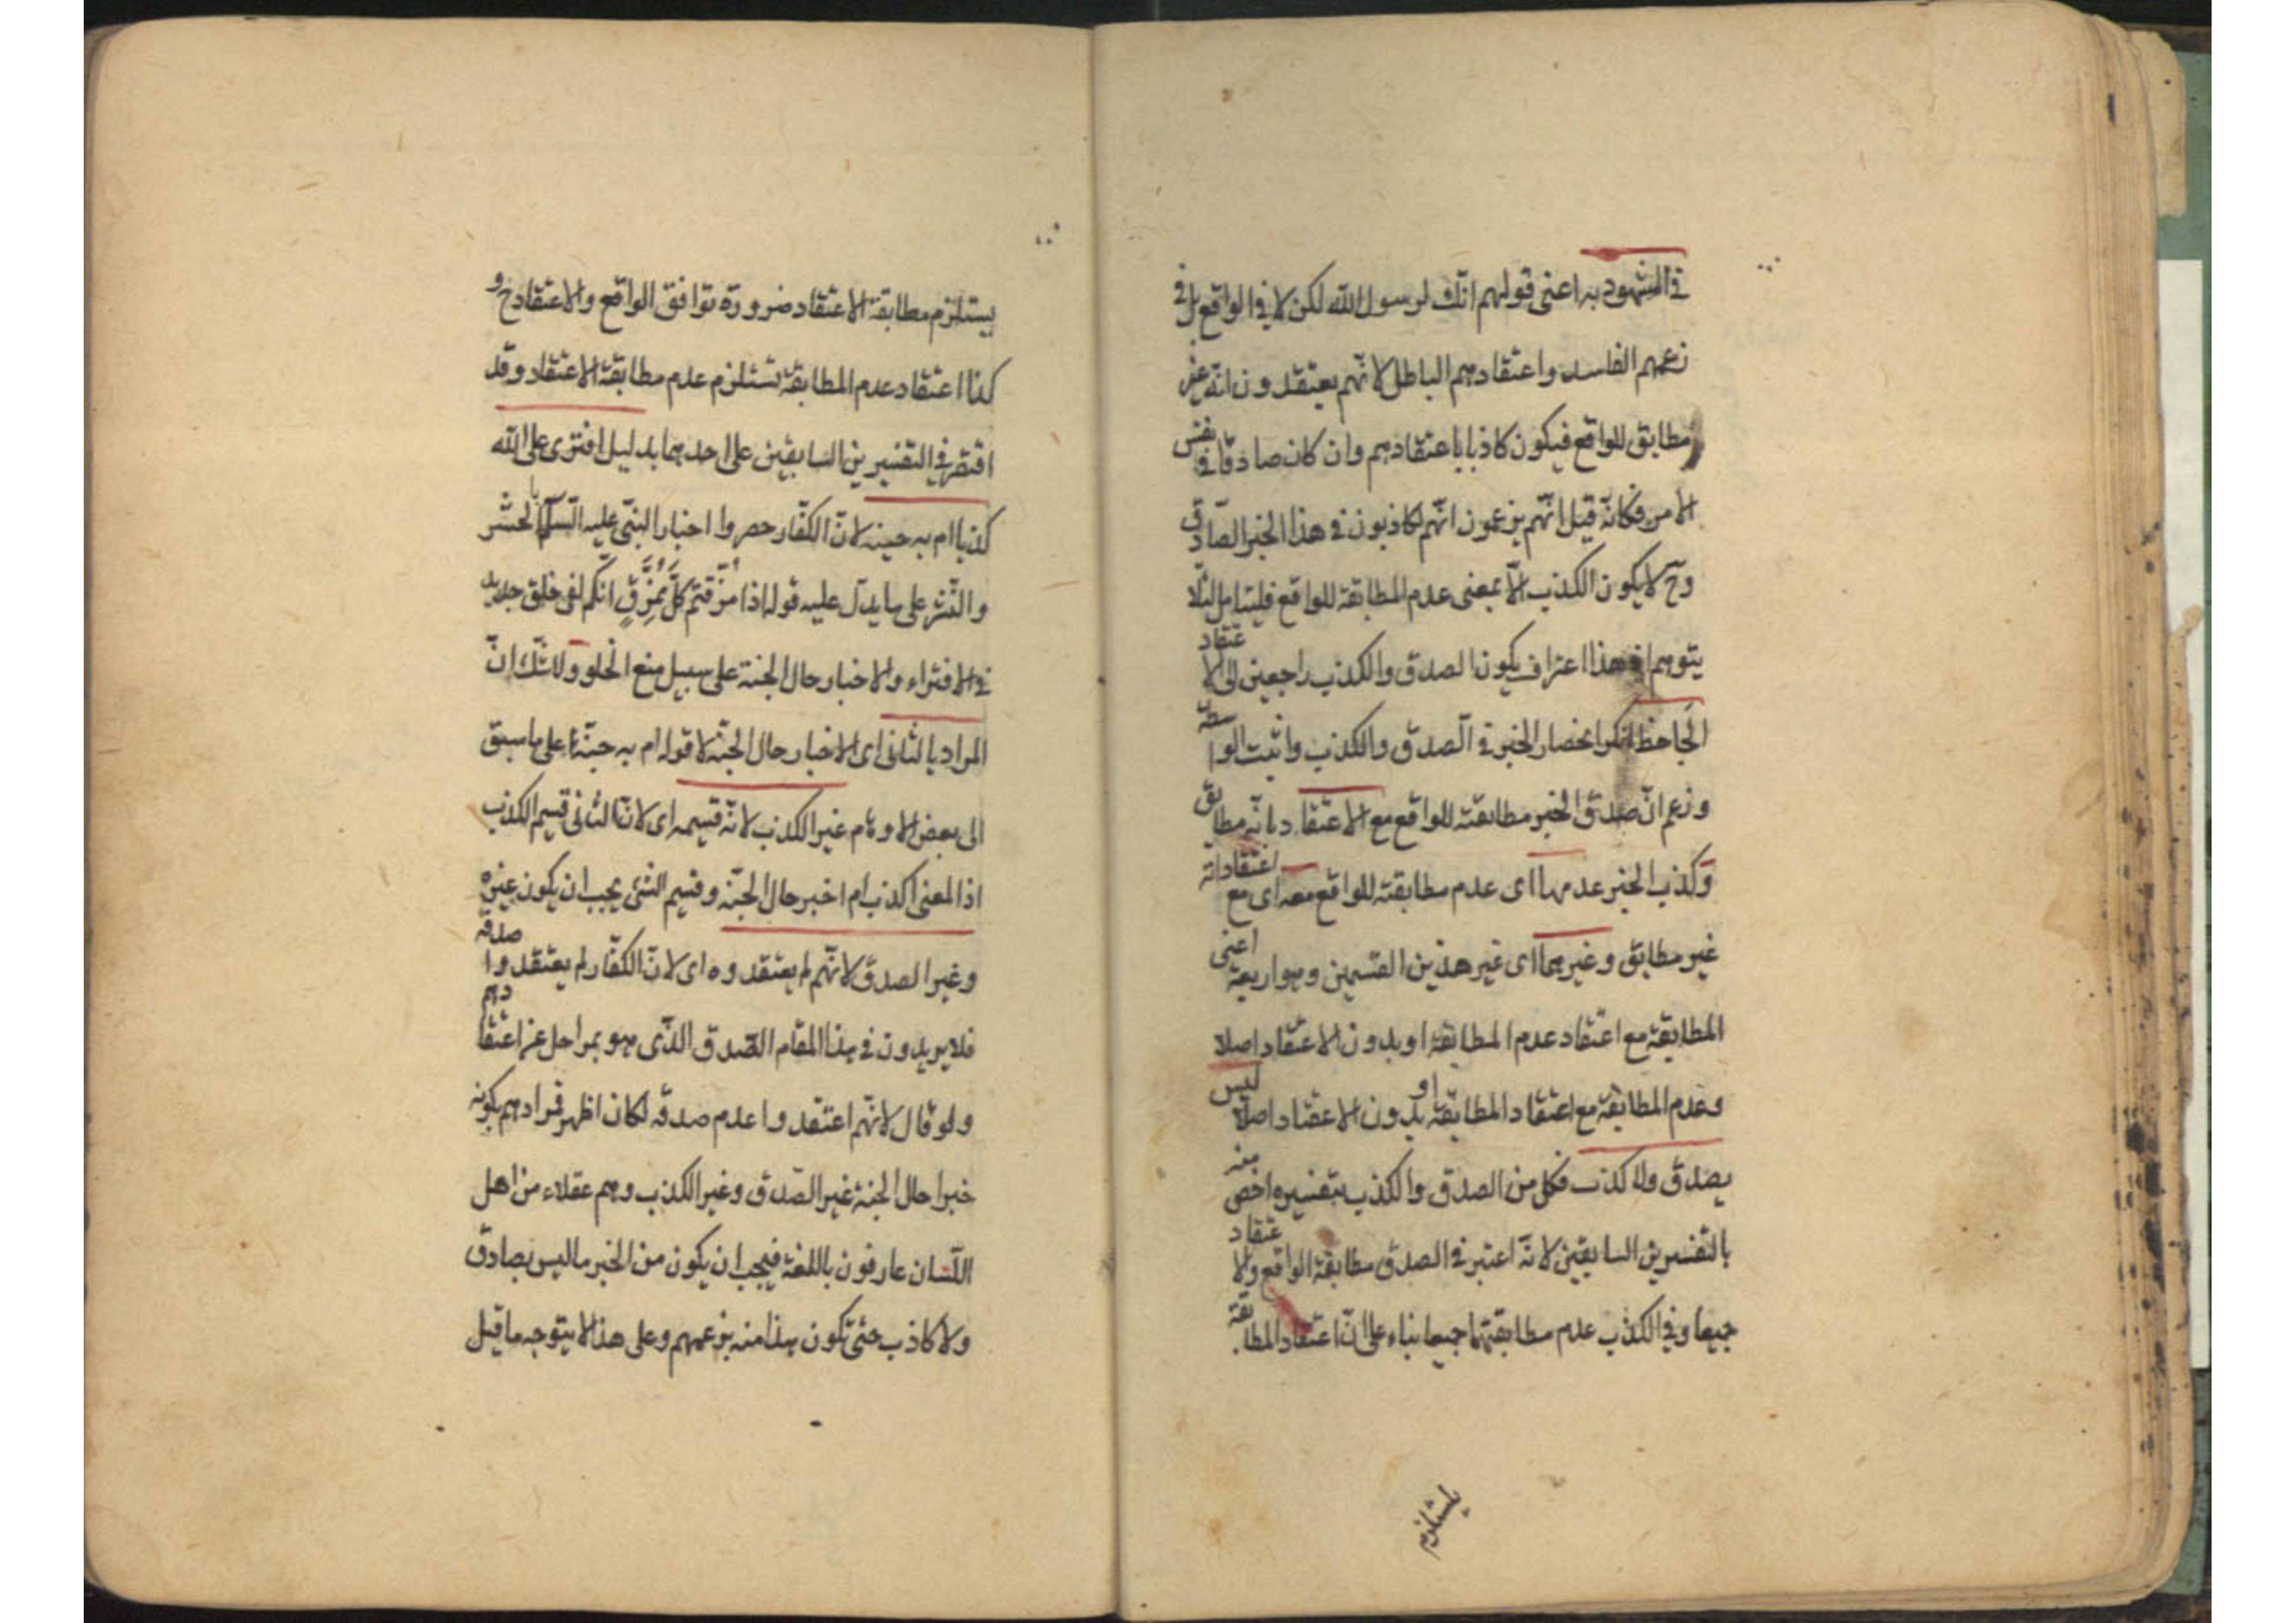 في المشهود به اعنى قولهم انك لرسول الله لكن لا في الواقع بل في
زعمهم الفاسد واعتقادهم الباطل لانهم يعتقدون انه غير
مطابق للواقع فيكون كاذبا باعتقادهم وان كان صادقا في نفس
الامر فكانه قيل انهم يزعمون انهم لكاذبون في هذا الخبر الصادق
وح لا يكون الكذب الا بمعنى عدم المطابقة للواقع فليتامل لئلا
يتوهم ان هذا اعتراف بكون الصدق والكذب راجعين الى الاعتقاد
الجاحظ انكر انحصار الخبر في الصدق والكذب واثبت الواسطة
وزعم ان صدق الخبر مطابقته للواقع مع الاعتقاد بانه مطابق
وكذب الخبر عدمها اى عدم مطابقته للواقع معه اى مع اعتقاد انه
غير مطابق وغيرهما اى غير هذين القسمين وهو اربعة اعنى
المطابقة مع اعتقاد عدم المطابقة او بدون الاعتقاد اصلا
وعدم المطابقة مع اعتقاد المطابقة او بدون الاعتقاد اصلا ليس
بصدق ولا كذب فكل من الصدق والكذب بتفسيره اخص منه
بالتفسيرين السابقين لانه اعتبر في الصدق مطابقة الواقع والاعتقاد
جميعا وفي الكذب عدم مطابقتهما جميعا بناء على ان اعتقاد المطابقة
يستلزم
يستلزم مطابقة الاعتقاد ضرورة توافق الواقع والاعتقاد ح و
كذا اعتقاد عدم المطابقة تستلزم عدم مطابقة الاعتقاد وقد
اقتصر في التفسيرين السابقين على احدهما بدليل افترى على الله
كذبا ام به جنة لان الكفار حصروا اخبار النبي عليه السلام بالحشر
والنشر على ما يدل عليه قوله اذا مزقتم كل ممزق انكم لفى خلق جديد
في الافتراء والاخبار حال الجنة على سبيل منع الخلو ولا شك ان
المراد بالثانى اى الاخبار حال الجنة لا قوله ام به جنة على ما سبق
الى بعض الاوهام غير الكذب لانه قسيمه اى لان الثانى قسيم الكذب
اذ المعنى اكذب ام اخبر حال الجنة وقسيم الشئ يجب ان يكون غيره
وغير الصدق لانهم لم يعتقدوه اى لان الكفار لم يعتقدوا صدقه
فلا يريدون في هذا المقام الصدق الذى هو بمراحل عن اعتقادهم
ولو قال لانهم اعتقدوا عدم صدقه لكان اظهر فمرادهم بكونه
خبرا حال الجنة غير الصدق وغير الكذب وهم عقلاء من اهل
اللسان عارفون باللغة فيجب ان يكون من الخبر ما ليس بصادق
ولا كاذب حتى تكون هذا منه بزعمهم وعلى هذا لا يتوجه ما قيل